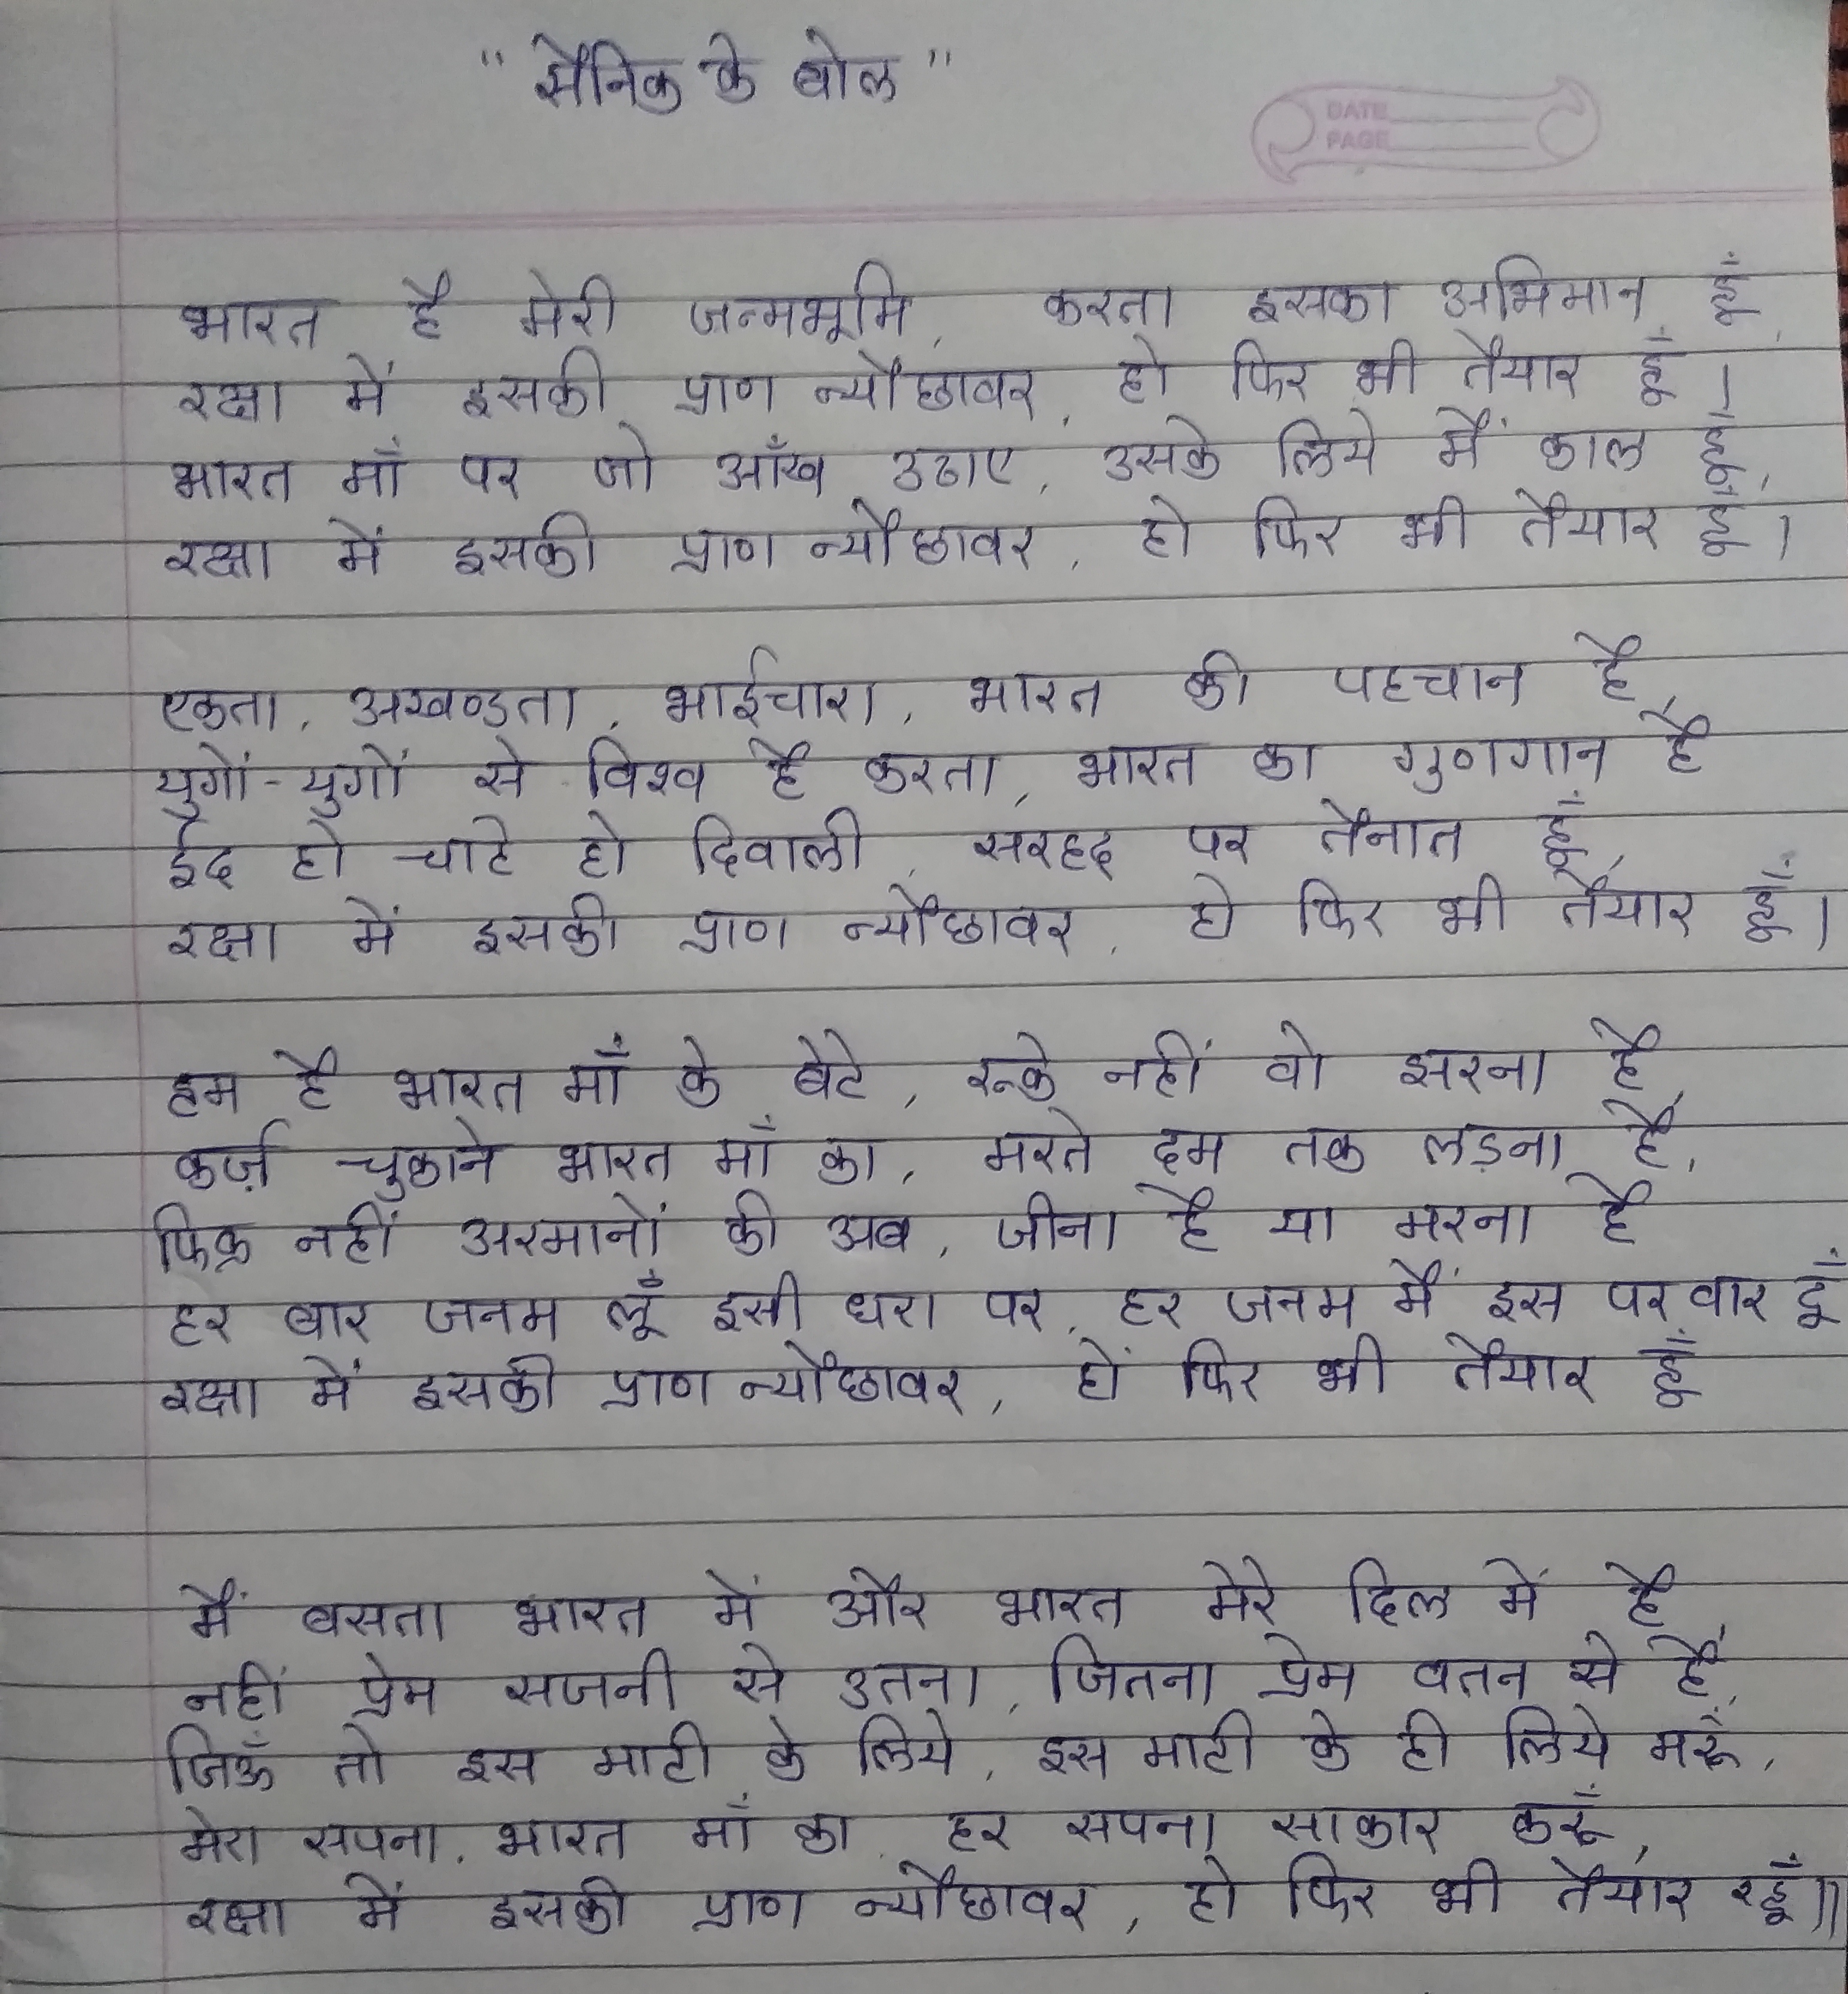 "सैनिक के बोल"
DATE
PAGE
भारत है मेरी जन्मभूमि, करता इसका अभिमान हूँ,
रक्षा में इसकी प्राण न्यौछावर, हो फिर भी तैयार हूँ।
भारत माँ पर जो आँख उठाए, उसके लिये मैं काल हूँ,
रक्षा में इसकी प्राण न्यौछावर, हो फिर भी तैयार हूँ।
एकता, अखण्डता, भाईचारा, भारत की पहचान है,
युगों-युगों से विश्व है करता, भारत का गुणगान है
ईद हो चाहे हो दिवाली, सरहद पर तैनात हूँ,
रक्षा में इसकी प्राण न्यौछावर, हो फिर भी तैयार हूँ।
हम है भारत माँ के बेटे, रुके नहीं वो झरना है,
कर्ज़ चुकाने भारत माँ का, मरते दम तक लड़ना है,
फिक्र नहीं अरमानों की अब, जीना है या मरना है
हर बार जनम लूँ इसी धरा पर, हर जनम मैं इस पर वार दूँ
रक्षा में इसकी प्राण न्यौछावर, हों फिर भी तैयार हूँ
मैं बसता भारत में और भारत मेरे दिल में है,
नहीं प्रेम सजनी से उतना, जितना प्रेम वतन से है,
जिऊँ तो इस माटी के लिये, इस माटी के ही लिये मरूँ,
मेरा सपना, भारत माँ का, हर सपना साकार करूँ,
रक्षा में इसकी प्राण न्यौछावर, हो फिर भी तैयार रहूँ॥